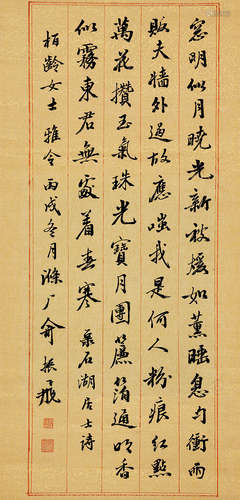 窓明似月曉光新被煖如薰睡息勻衝雨
販夫墻外過故應嗤我是何人粉痕紅點
萬花攢玉氣珠光寶月團簾箔通明香
似霧東君無處着春寒 彔石湖居士詩
柏齡女士雅令丙戌冬月滌厂俞振飛